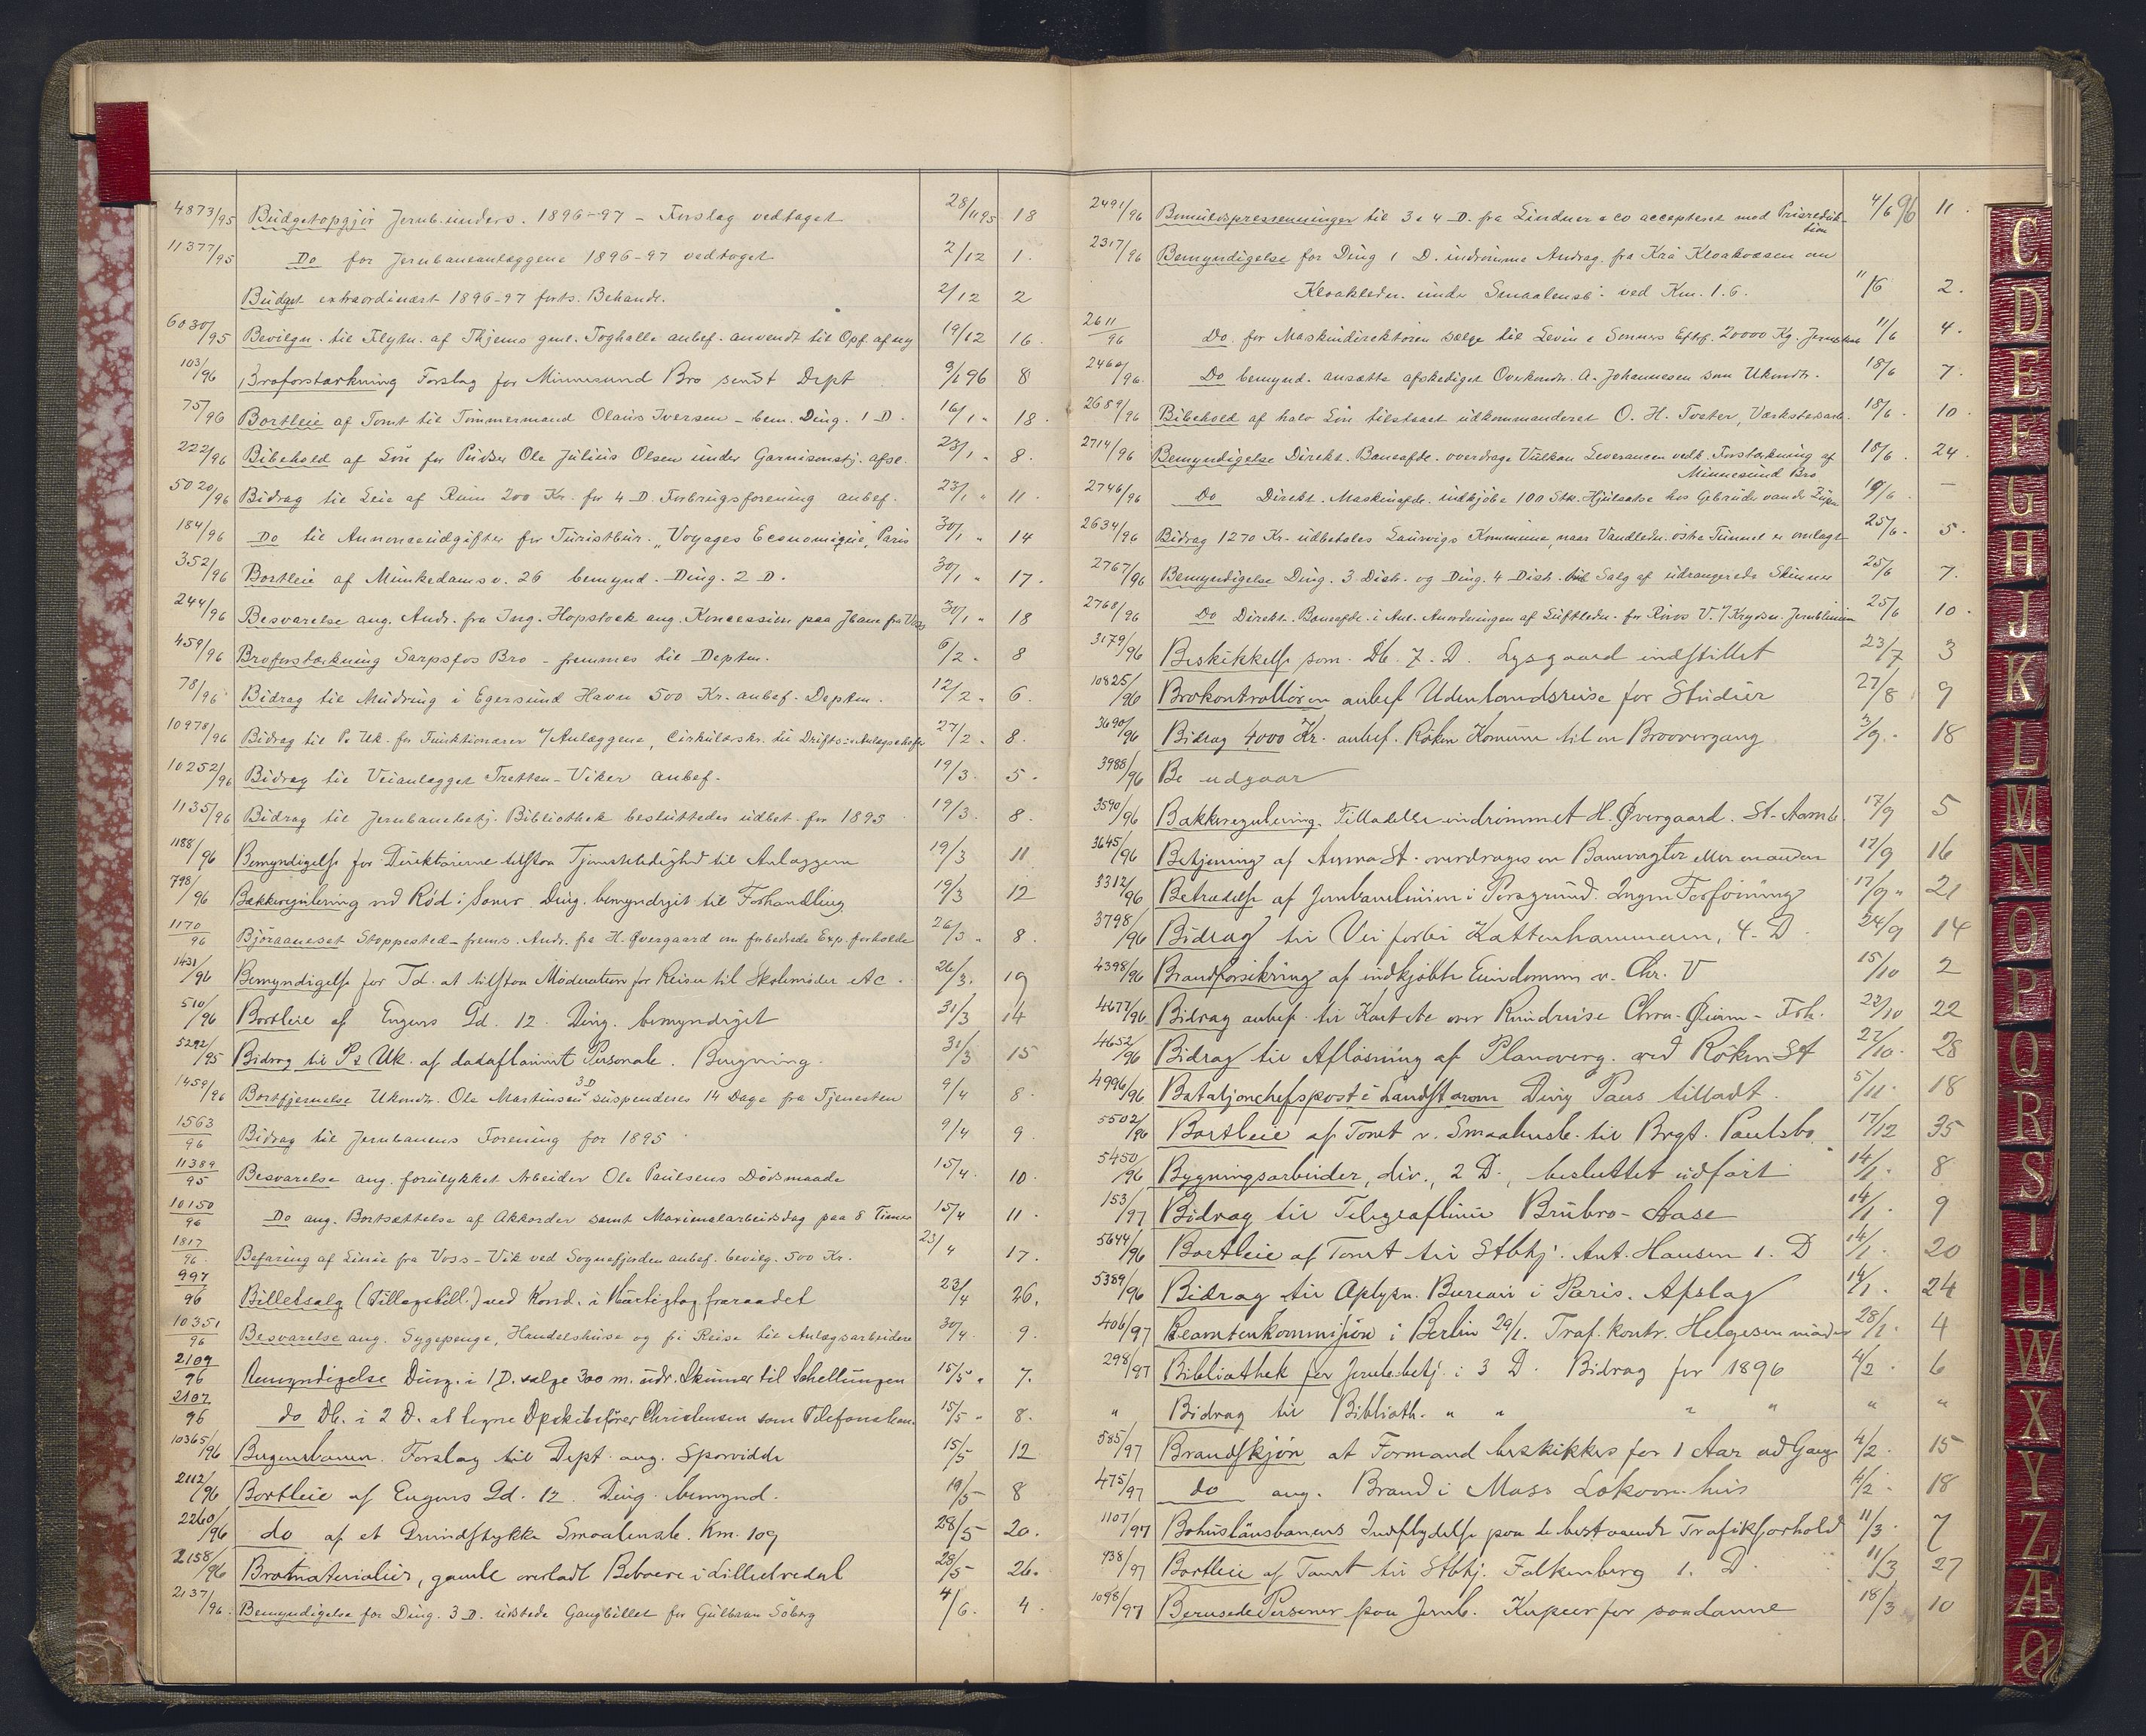 4873/95 Budgetopgjör Jernb.unders. 1896-97 - Forslag vedtaget 28/11 95 18
11377/95 Do for Jernbaneanlæggene 1896-97 vedtaget 2/12 1.
Budget extraordinært 1896-97 forts. Behandl. 2/12 2
6030/95 Bevilgn. til Flytn. af Thjems gml. Toghalle anbef. anvendt til Opf. af ny 19/12 16.
103/96 Broforstærkning Forslag for Minnesund Bro sendt Dept 9/1 96 8
75/96 Bortleie af Tomt til Tömmermand Olaus Iversen - bem. Ding. 1 D. 16/1 " 18.
222/96 Bibehold af Lön for Pudser Ole Julius Olsen under Garnisonstj. afsl. 23/1 " 8.
5020/96 Bidrag til Leie af Rum 200 Kr. for 4 D. Forbrugsforening anbef. 23/1 " 11.
184/96 Do til Annonceudgifter for Turistbur. "Voyages Economique", Paris 30/1 " 14
352/96 Bortleie af Munkedamsv. 26 bemynd. Ding. 2 D. 30/1 " 17.
244/96 Besvarelse ang. Andr. fra Ing. Hopstock ang. Koncession paa Jbane fra Voss 30/1 " 18
459/96 Broforstærkning Sarpsfos Bro - fremmes til Depten. 6/2 " 8
78/96 Bidrag til Mudring i Egersund Havn 500 Kr. anbef. Depten. 12/2 " 6.
10978/96 Bidrag til Ps Uk. for Funktionærer v/ Anlæggene, Cirkulærskr. til Drifts- & Anlægschefer 27/2 " 8.
10252/96 Bidrag til Veianlægget Tretten-Viker anbef. 19/3 5.
1135/96 Bidrag til Jernbanebetj. Bibliothek besluttedes udbet. for 1895 19/3 8.
1188/96 Bemyndigelse for Direktörerne tilstaa Tjenstledighed til Anlæggene 19/3 11
798/96 Bækkeregulering ved Röd i Soner Ding. bemyndiget til Forhandling 19/3 12
1170/96 Björaaneset Stoppested - frems. Andr. fra H. Øvergaard om forbedrede Exp. forholde 26/3 " 8.
1431/96 Bemyndigelse for Td. at tilstaa Moderation for Reiser til Skolemöder etc. 26/3. 19
510/96 Bortleie af Engens Gd. 12. Ding. bemyndiget 31/3 14
5292/95 Bidrag til Ps Uk. af dödaflönnet Personale. Bergning. 31/3 15
1459/96 Bortfjernelse Ukondr. Ole Martinsen 3 D suspenderes 14 Dage fra Tjenesten 9/4 8.
1563/96 Bidrag til Jernbanens Forening for 1895 9/4 9.
11389/95 Besvarelse ang. forulykket Arbeider Ole Paulsens Dödsmaade 15/4. 10.
10150/96 Do ang. Bortsættelse af Akkorder samt Maximalarbeidsdag paa 8 Timer 15/4 11.
1817/96 Befaring af Linie fra Voss-Vik ved Sognefjorden anbef. bevilg. 500 Kr. 23/4 17.
997/96 Billetsalg (Tillægsbill.) ved Kond. i Hurtigtog fraraadet 23/4 26.
10351/96 Besvarelse ang. Sygepenge, Handelshuse og fri Reise til Anlægsarbeidere 30/4. 9.
2109/96 Bemyndigelse Ding. i 1 D. sælge 300 m. udr. Skinner til Schellungen 15/5 " 7.
2107/96 do Db. i 2 D. at lægge Opskibsförer Christensen som 15/5 " 8.
10365/96 Bergensbanen. Forslag til Dept. ang. Sporvidde 15/5 12
2112/96 Bortleie af Engens Gd. 12. Ding. bemynd. 19/5 8
2260/96 do af et Grundstykke Smaalensb. Km. 109 28/5 20.
2158/96 Bromaterialier, gamle overladt Beboere i Lilleelvedal 28/5 26.
2137/96. Bemyndigelse for Ding. 3 D. udstede Gangbillet for Gulbran Söberg 4/6. 4.
2491/96 Bomuldspressenninger til 3 & 4 D. fra Lindner & Co accepteret mod Prisreduk- 4/6 96 11.
tion
2317/96 Bemyndigelse for Ding 1 D. indrömme Andrag. fra Kra Kloakvæsen om
Kloakledn. under Smaalensb. ved Km. 1.6. 11/6 2.
2611/96 Do. for Maskindirektören sælge til Levin & Sönners Eftf. 20000 Kg. 11/6 4.
2460/96. Do bemynd. ansætte afskediget Overkondr. A. Johannesen som Ukondr. 18/6 7.
2689/96 Bibehold af halv Lön tilstaaet udkommanderet O. H. Tveter, Værkstedsarb. 18/6. 10.
2714/96 Bemyndigelse Direkt. Baneafde. overdrage Vulkan Leverancen vedk. Forstærkning af 18/6. 24.
Minnesund Bro
2746/96 Do Direkt. Maskinafde. indkjöbe 100 Stk. Hjulsatse hos Gebrüder van der Zypen 19/6. —
2634/96 Bidrag 1270 Kr. udbetales Laurvigs Kommune, naar Vandledn. östre Tunnel er omlagt 25/6. 5.
2767/96 Bemyndigelse Ding. 3 Distr. og Ding. 4 Distr. til Salg af udrangerede Skinner 25/6 7.
2768/96 Do Direkt. Baneafde. i Anl. Anordningen af Luftledn. for Röros V. v/ Krydsn. Jernblinien 25/6 10.
3179/96 Beskikkelse som Db. 7. D. Lysgaard indstillet 23/7 3
10825/96 Brokontrollören anbef. Udenlandsreise for Studier 27/8 9
3690/96 Bidrag 4000 Kr. anbef. Röken Komune til en Broovergang 3/9. 18
3988/96 Be udgaar
3590/96 Bækkeregulering. Tilladelse indrömmet H. Øvergaard. St. Aamb. 17/9 5
3645/96 Betjening af Aerma St. overdrages en Banevogter eller en anden 17/9 16
3312/96 Betrædelse af Jernbanelinien i Porsgrund. Ingen Forföining 17/9 " 21
3798/96 Bidrag til Vei forbi Kattenhammeren, 4. D. 24/9 14
4398/96 Brandforsikring af indkjöbte Eiendomme v. Chr. V 15/10 2
4677/96 Bidrag anbef. til Kart etc over Rundreise Chra-Øieren-Frh. 22/10 22
4652/96 Bidrag til Aflösning af Planoverg. ved Röken St 22/10. 28
4996/96 Bataljonchefspost i Landstormen Ding Paus tilladt. 5/11. 18
5502/96 Bortleie af Tomt v. Smaalensb. til Brgt. Paulsbo. 17/12 35
5450/96 Bygningsarbeider, div., 2 D., besluttet udfört 14/1. 8
153/97 Bidrag til Telegraflinie Brubro-Aase 14/1. 9
5644/96 Bortleie af Tomt til Stbtj. Ant. Hansen 1. D 14/1. 20
5389/96 Bidrag til Oplysn. Bureau i Paris. Afslag 14/1. 24
406/97 Beamtenkommission i Berlin 29/1. Traf. kontr. Helgesen möder 28/1. 4
298/97 Bibliothek for Jernb.betj. i 3 D. Bidrag for 1896 4/2. 6
" Bidrag til Biblioth. " " " " " "
585/97 Brandskjön at Formand beskikkes for 1 Aar ad Gang 4/2. 15
475/97 do ang. Brand i Moss Lokom. hus 4/2. 18
1107/97 Bohuslänsbanens Indflydelse paa de bestaaende Trafikforhold 11/3. 7
938/97 Bortleie af Tomt til Stbtj. Falkenberg 1. D. 11/3 27
1098/97 Berusede Personer paa Jernb. Kupeer for saadanne 18/3 10
C
D
E
F
G
H
J
K
L
M
N
O
P
Q
R
S
T
U
W
X
Y
Z
Æ
Ø